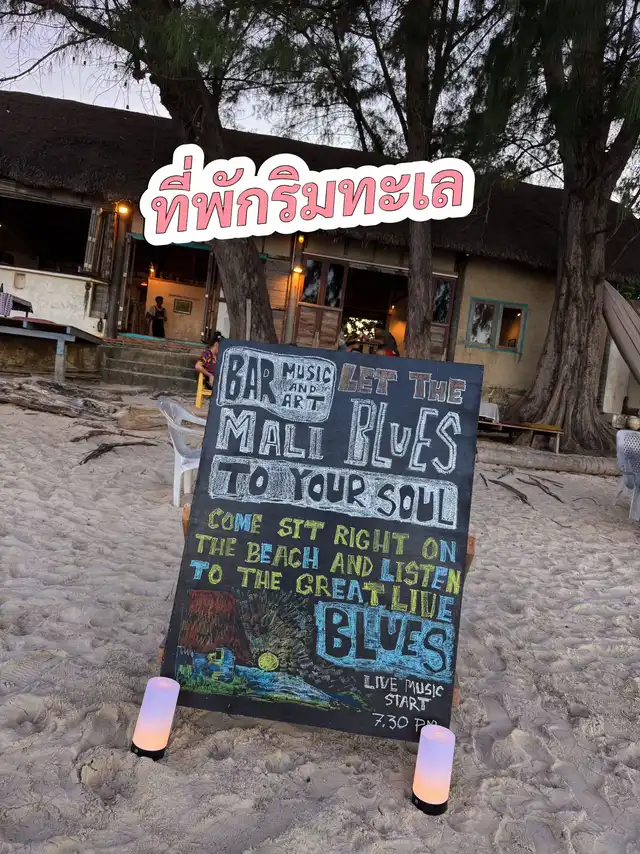 ที่พักริมทะเล
BAR MUSIC AND ART LET THE
MALI BLUES
TO YOUR SOUL
COME SIT RIGHT ON
THE BEACH AND LISTEN
TO THE GREAT LIVE
BLUES
LIVE MUSIC
START
7.30 PM